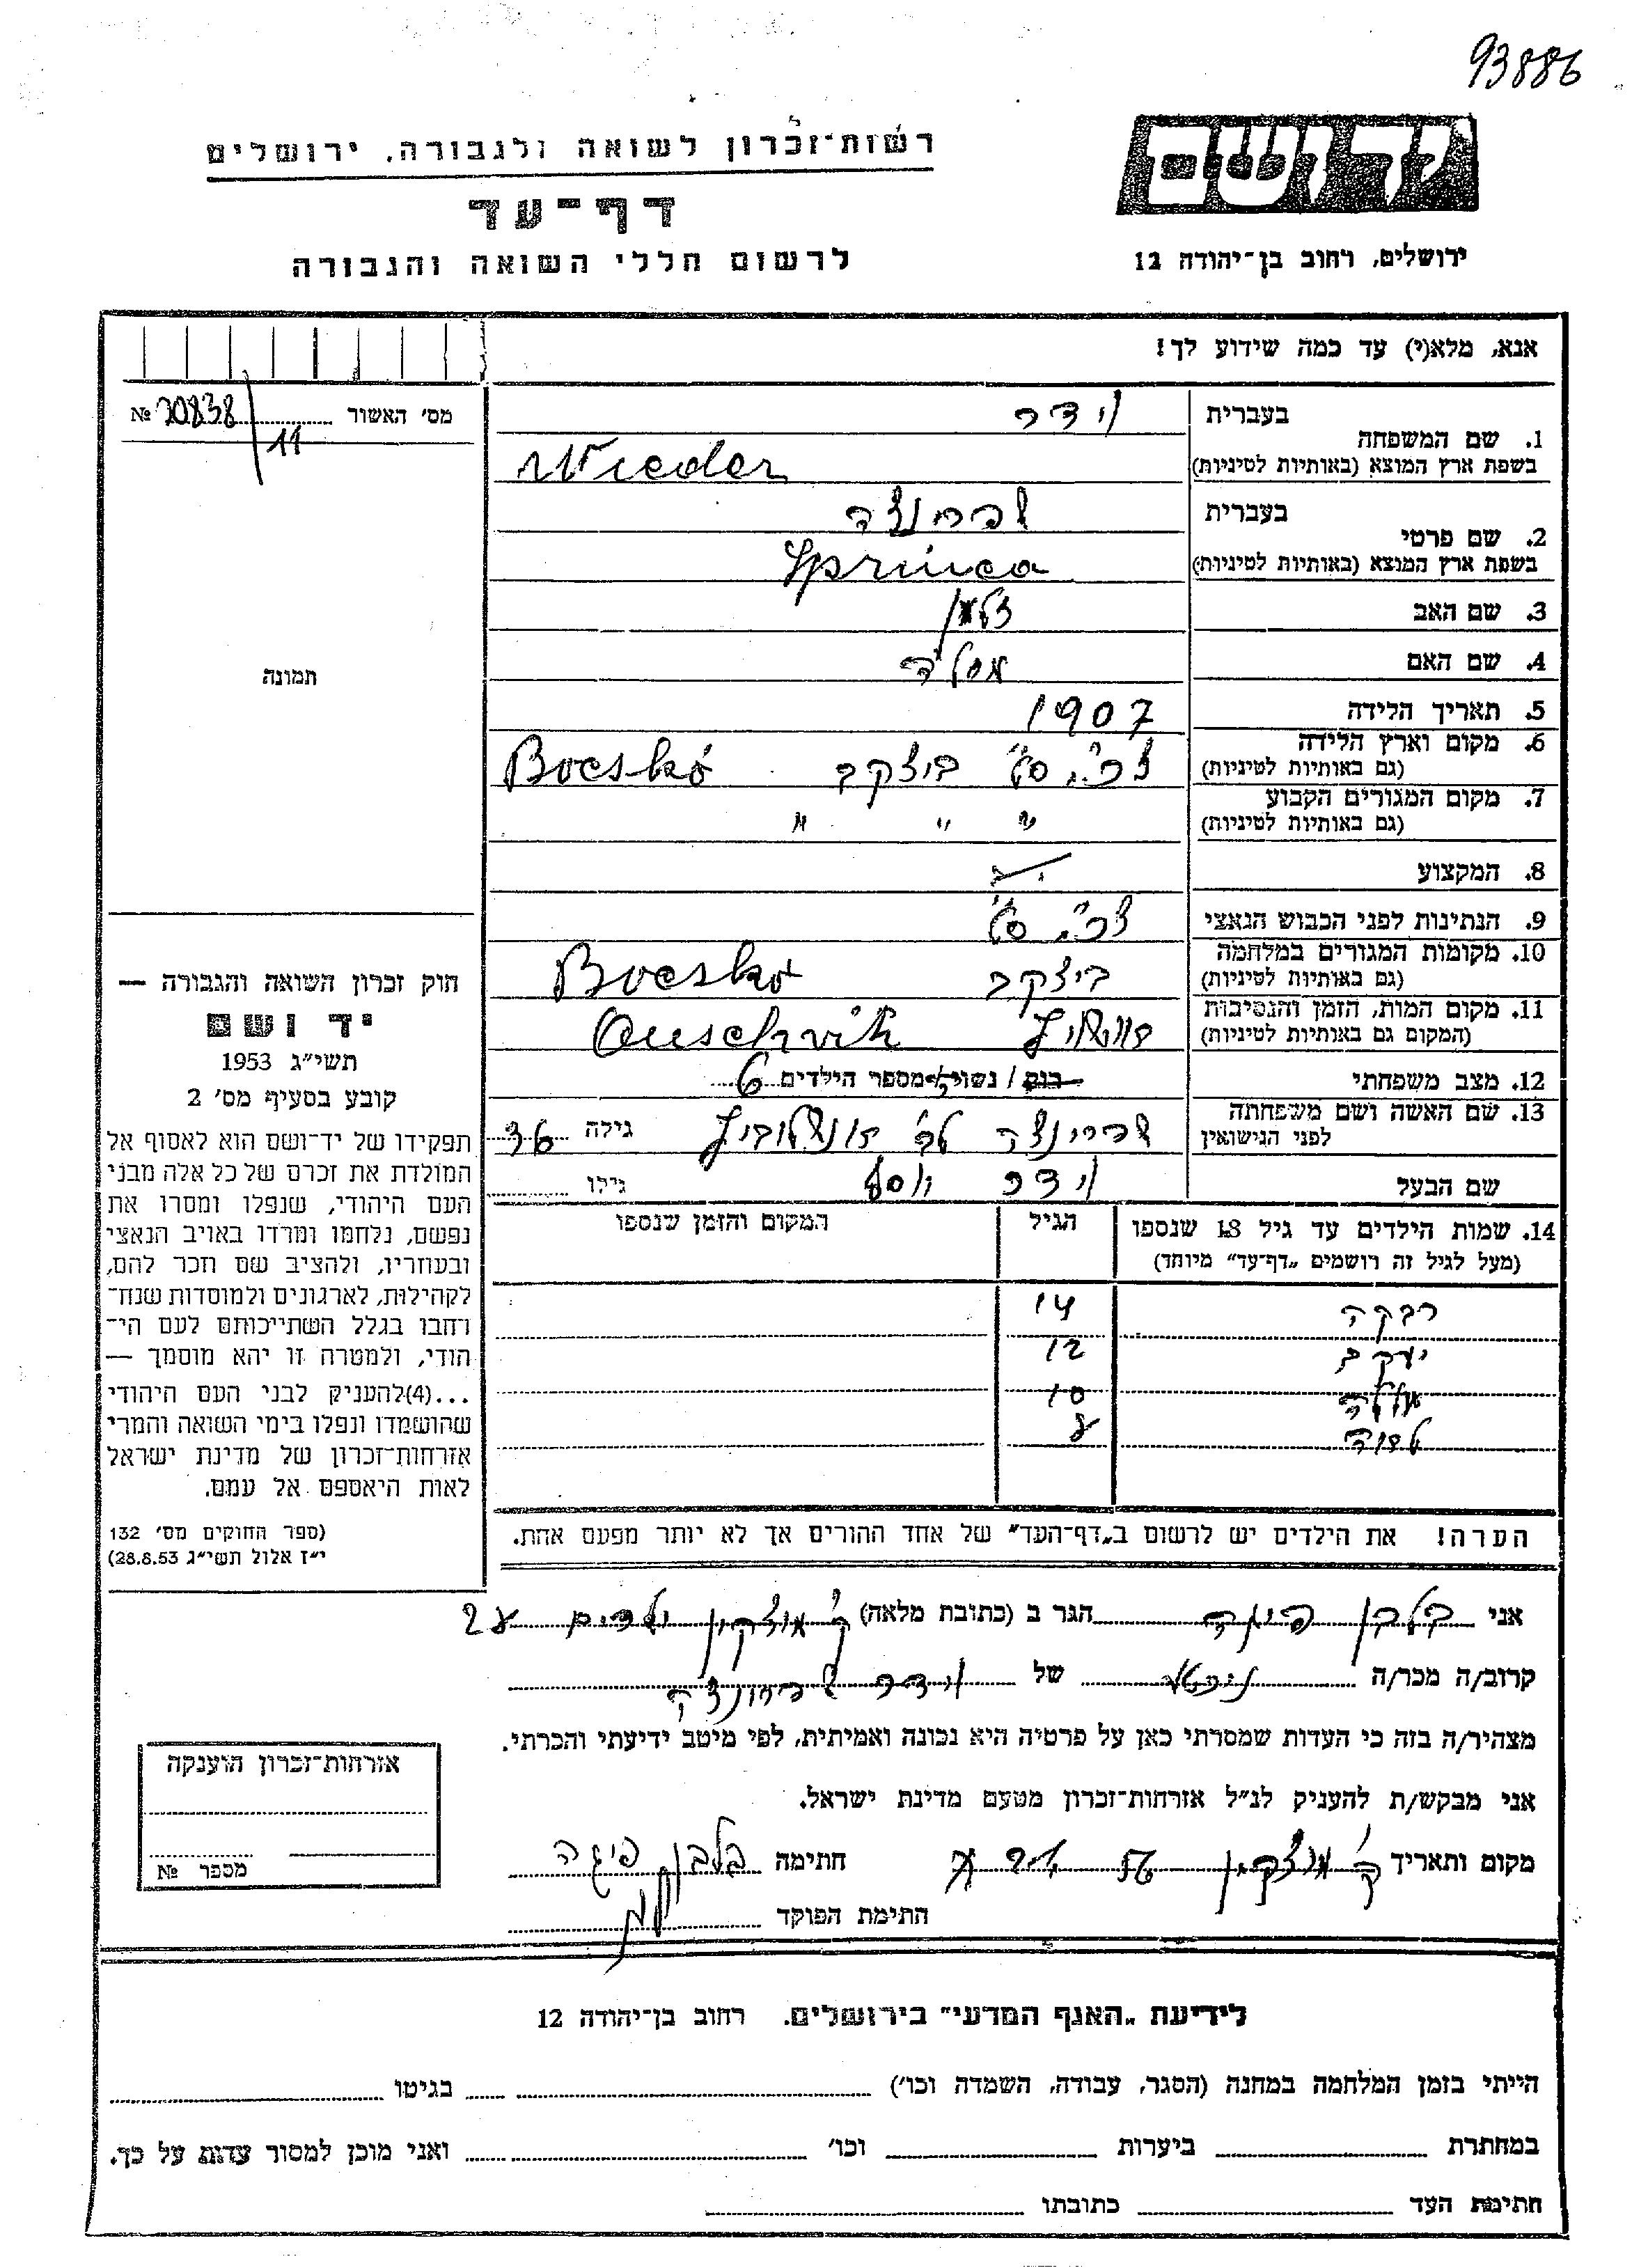 93886
רשות־זכרון לשואה ולגבורה, ירושלים
דף־עד
לרשום חללי השואה והגבורה
ידושם
ירושלים, רחוב בן־יהודה 12
אנא, מלא(י) עד כמה שידוע לך!
מס׳ האשור № 20838/11
תמונה
1. שם המשפחה
בעברית וידר
בשפת ארץ המוצא (באותיות לטיניות) Wieder
2. שם פרטי
בעברית שפרינצה
בשפת ארץ המוצא (באותיות לטיניות) Sprinca
3. שם האב זלמן
4. שם האם
5. תאריך הלידה 1907
6. מקום וארץ הלידה
(גם באותיות לטיניות) צ׳כ׳ ביצקב Bocskó
7. מקום המגורים הקבוע
(גם באותיות לטיניות) " " "
8. המקצוע
9. הנתינות לפני הכבוש הנאצי
10. מקומות המגורים במלחמה
(גם באותיות לטיניות) ביצקב Bocskó
11. מקום המות, הזמן והנסיבות
(המקום גם באותיות לטיניות) אושויץ Ouschvitz
12. מצב משפחתי רוק / נשוי/אה מספר הילדים 6
13. שם האשה ושם משפחתה
לפני הנישואין שפרינצה לב׳ גילה
שם הבעל וידר יוסף גילו
14. שמות הילדים עד גיל 18 שנספו
(מעל לגיל זה רושמים „דף־עד״ מיוחד)
הגיל
המקום והזמן שנספו
רבקה 14
יעקב 12
10
8
הערה! את הילדים יש לרשום ב„דף־העד״ של אחד ההורים אך לא יותר מפעם אחת.
חוק זכרון השואה והגבורה —
יד ושם
תשי״ג 1953
קובע בסעיף מס׳ 2
תפקידו של יד־ושם הוא לאסוף אל
המולדת את זכרם של כל אלה מבני
העם היהודי, שנפלו ומסרו את
נפשם, נלחמו ומרדו באויב הנאצי
ובעוזריו, ולהציב שם וזכר להם,
לקהילות, לארגונים ולמוסדות שנח־
רחבו בגלל השתייכותם לעם הי־
הודי, ולמטרה זו יהא מוסמך —
...(4)להעניק לבני העם היהודי
שהושמדו ונפלו בימי השואה והמרי
אזרחות־זכרון של מדינת ישראל
לאות היאספם אל עמם.
(ספר החוקים מס׳ 132
י״ז אלול תשי״ג 28.8.53)
אני בלבן פיגה הגר ב (כתובת מלאה) ק׳ מוצקין
קרוב/ה מכר/ה של וידר שפרינצה
מצהיר/ה בזה כי העדות שמסרתי כאן על פרטיה היא נכונה ואמיתית, לפי מיטב ידיעתי והכרתי.
אני מבקש/ת להעניק לנ״ל אזרחות־זכרון מטעם מדינת ישראל.
מקום ותאריך ק׳ מוצקין חתימה בלבן פיגה
חתימת הפוקד
אזרחות־זכרון הוענקה
מספר №
לידיעת „האגף המדעי״ בירושלים. רחוב בן־יהודה 12
הייתי בזמן המלחמה במחנה (הסגר, עבודה, השמדה וכו׳) בגיטו
במחתרת ביערות וכו׳ ואני מוכן למסור עדות על כך.
חתימת העד כתובתו